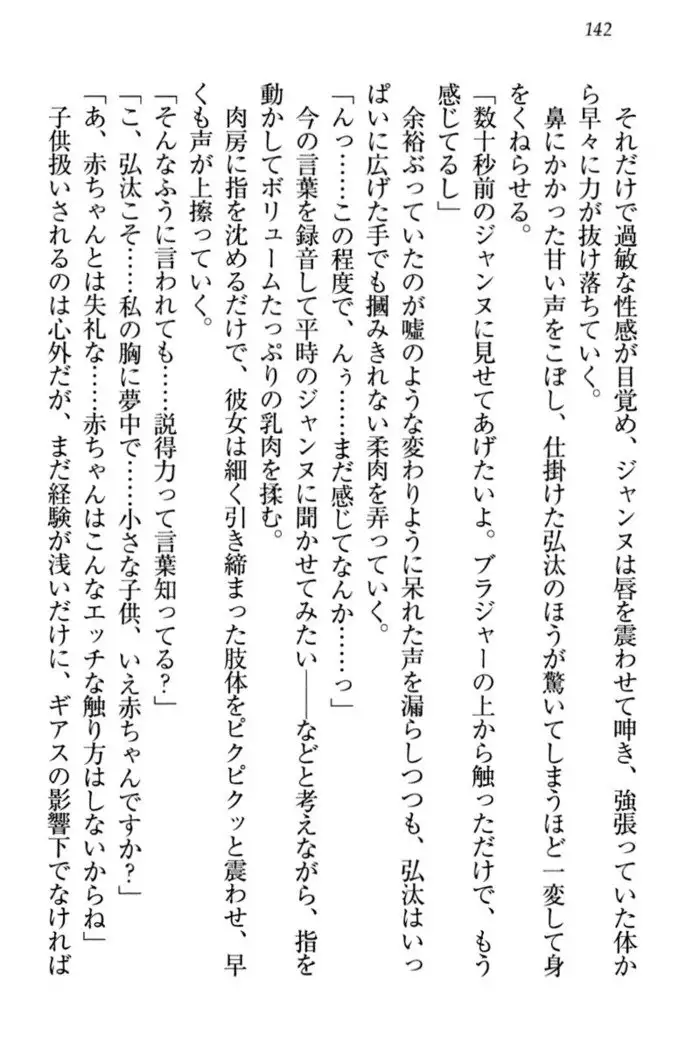 142
それだけで過敏な性感が目覚め、ジャンヌは唇を震わせて呻き、強張っていた体か
ら早々に力が抜け落ちていく。
鼻にかかった甘い声をこぼし、仕掛けた弘汰のほうが驚いてしまうほど一変して身
をくねらせる。
「数十秒前のジャンヌに見せてあげたいよ。ブラジャーの上から触っただけで、もう
感じてるし」
余裕ぶっていたのが嘘のような変わりように呆れた声を漏らしつつも、弘汰はいっ
ぱいに広げた手でも摑みきれない柔肉を弄っていく。
「んっ……この程度で、んぅ……まだ感じてなんか……っ」
今の言葉を録音して平時のジャンヌに聞かせてみたい――などと考えながら、指を
動かしてボリュームたっぷりの乳肉を揉む。
肉房に指を沈めるだけで、彼女は細く引き締まった肢体をピクピクッと震わせ、早
くも声が上擦っていく。
「そんなふうに言われても……説得力って言葉知ってる？」
「こ、弘汰こそ……私の胸に夢中で……小さな子供、いえ赤ちゃんですか？」
「あ、赤ちゃんとは失礼な……赤ちゃんはこんなエッチな触り方はしないからね」
子供扱いされるのは心外だが、まだ経験が浅いだけに、ギアスの影響下でなければ